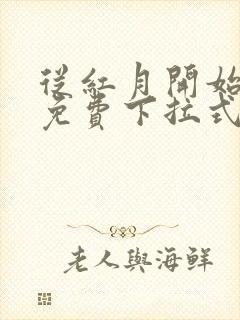 從紅月開始
免費下拉式
老人與海鮮